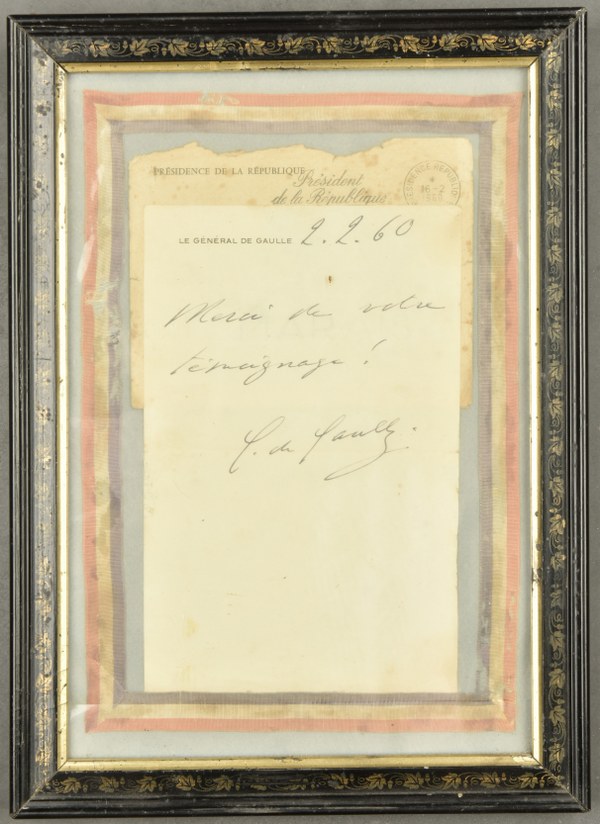 PRÉSIDENCE DE LA RÉPUBLIQUE
Président
de la République
16-2
LE GÉNÉRAL DE GAULLE 2.2.60
Merci de votre
témoignage !
C. de Gaulle.